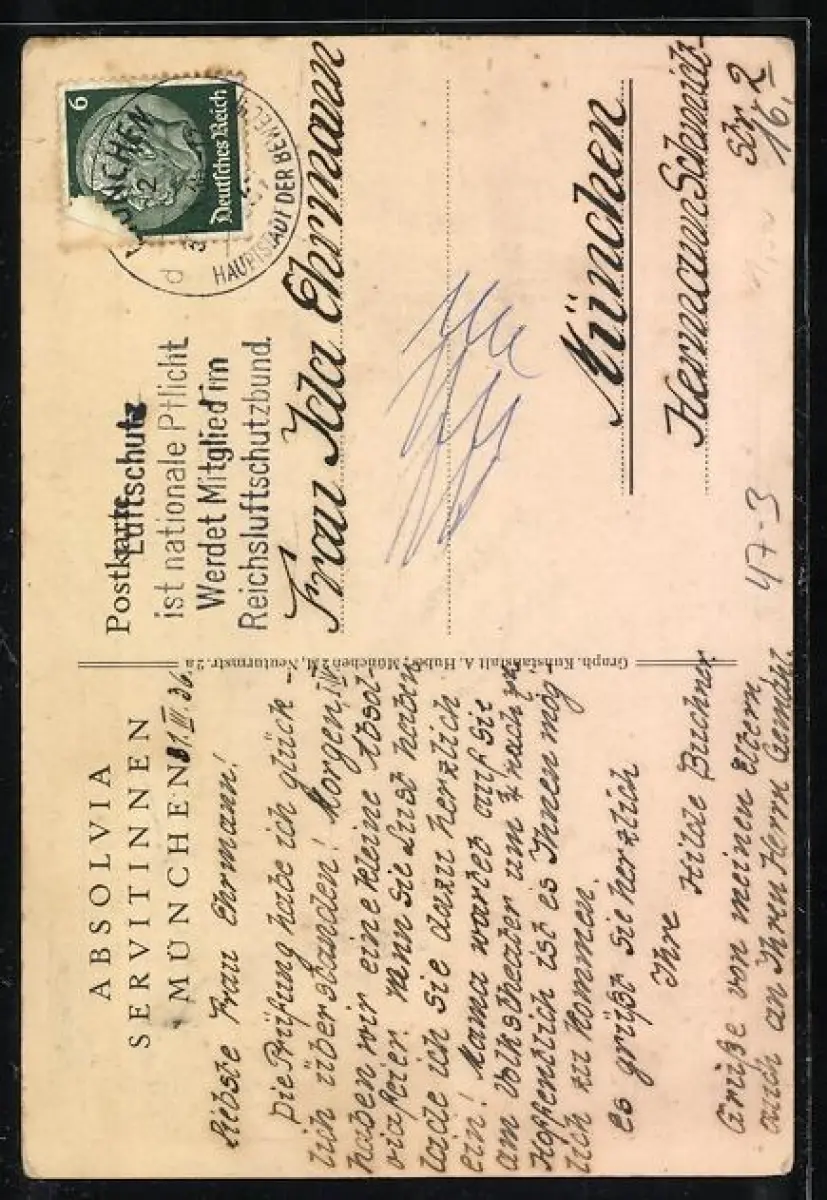 ABSOLVIA
SERVITINNEN
MÜNCHEN 31.III.36.
Liebste Frau Ehrmann!
Die Prüfung habe ich glück-
lich überstanden! Morgen, IV
haben wir eine kleine Absol-
viafeier. Wenn Sie Lust haben
lade ich Sie dazu herzlich
ein! Mama wartet auf Sie
am Volkstheater um ¾ nach
Hoffentlich ist es Ihnen mög-
lich zu kommen.
Es grüßt Sie herzlich
Ihre Hilde Buchner
Grüße von meinen Eltern
auch an Ihren Herrn Gemahl.
Graph. Kunstanstalt A. Huber, München 2 M, Neuturmstr. 2a
Postkarte
Luftschutz
ist nationale Pflicht
Werdet Mitglied im
Reichsluftschutzbund.
6
Deutsches Reich
MÜNCHEN
HAUPTSTADT DER
d
Frau Ida Ehrmann
München
2
Hermann Schmidt-
Str. 16.
47-3